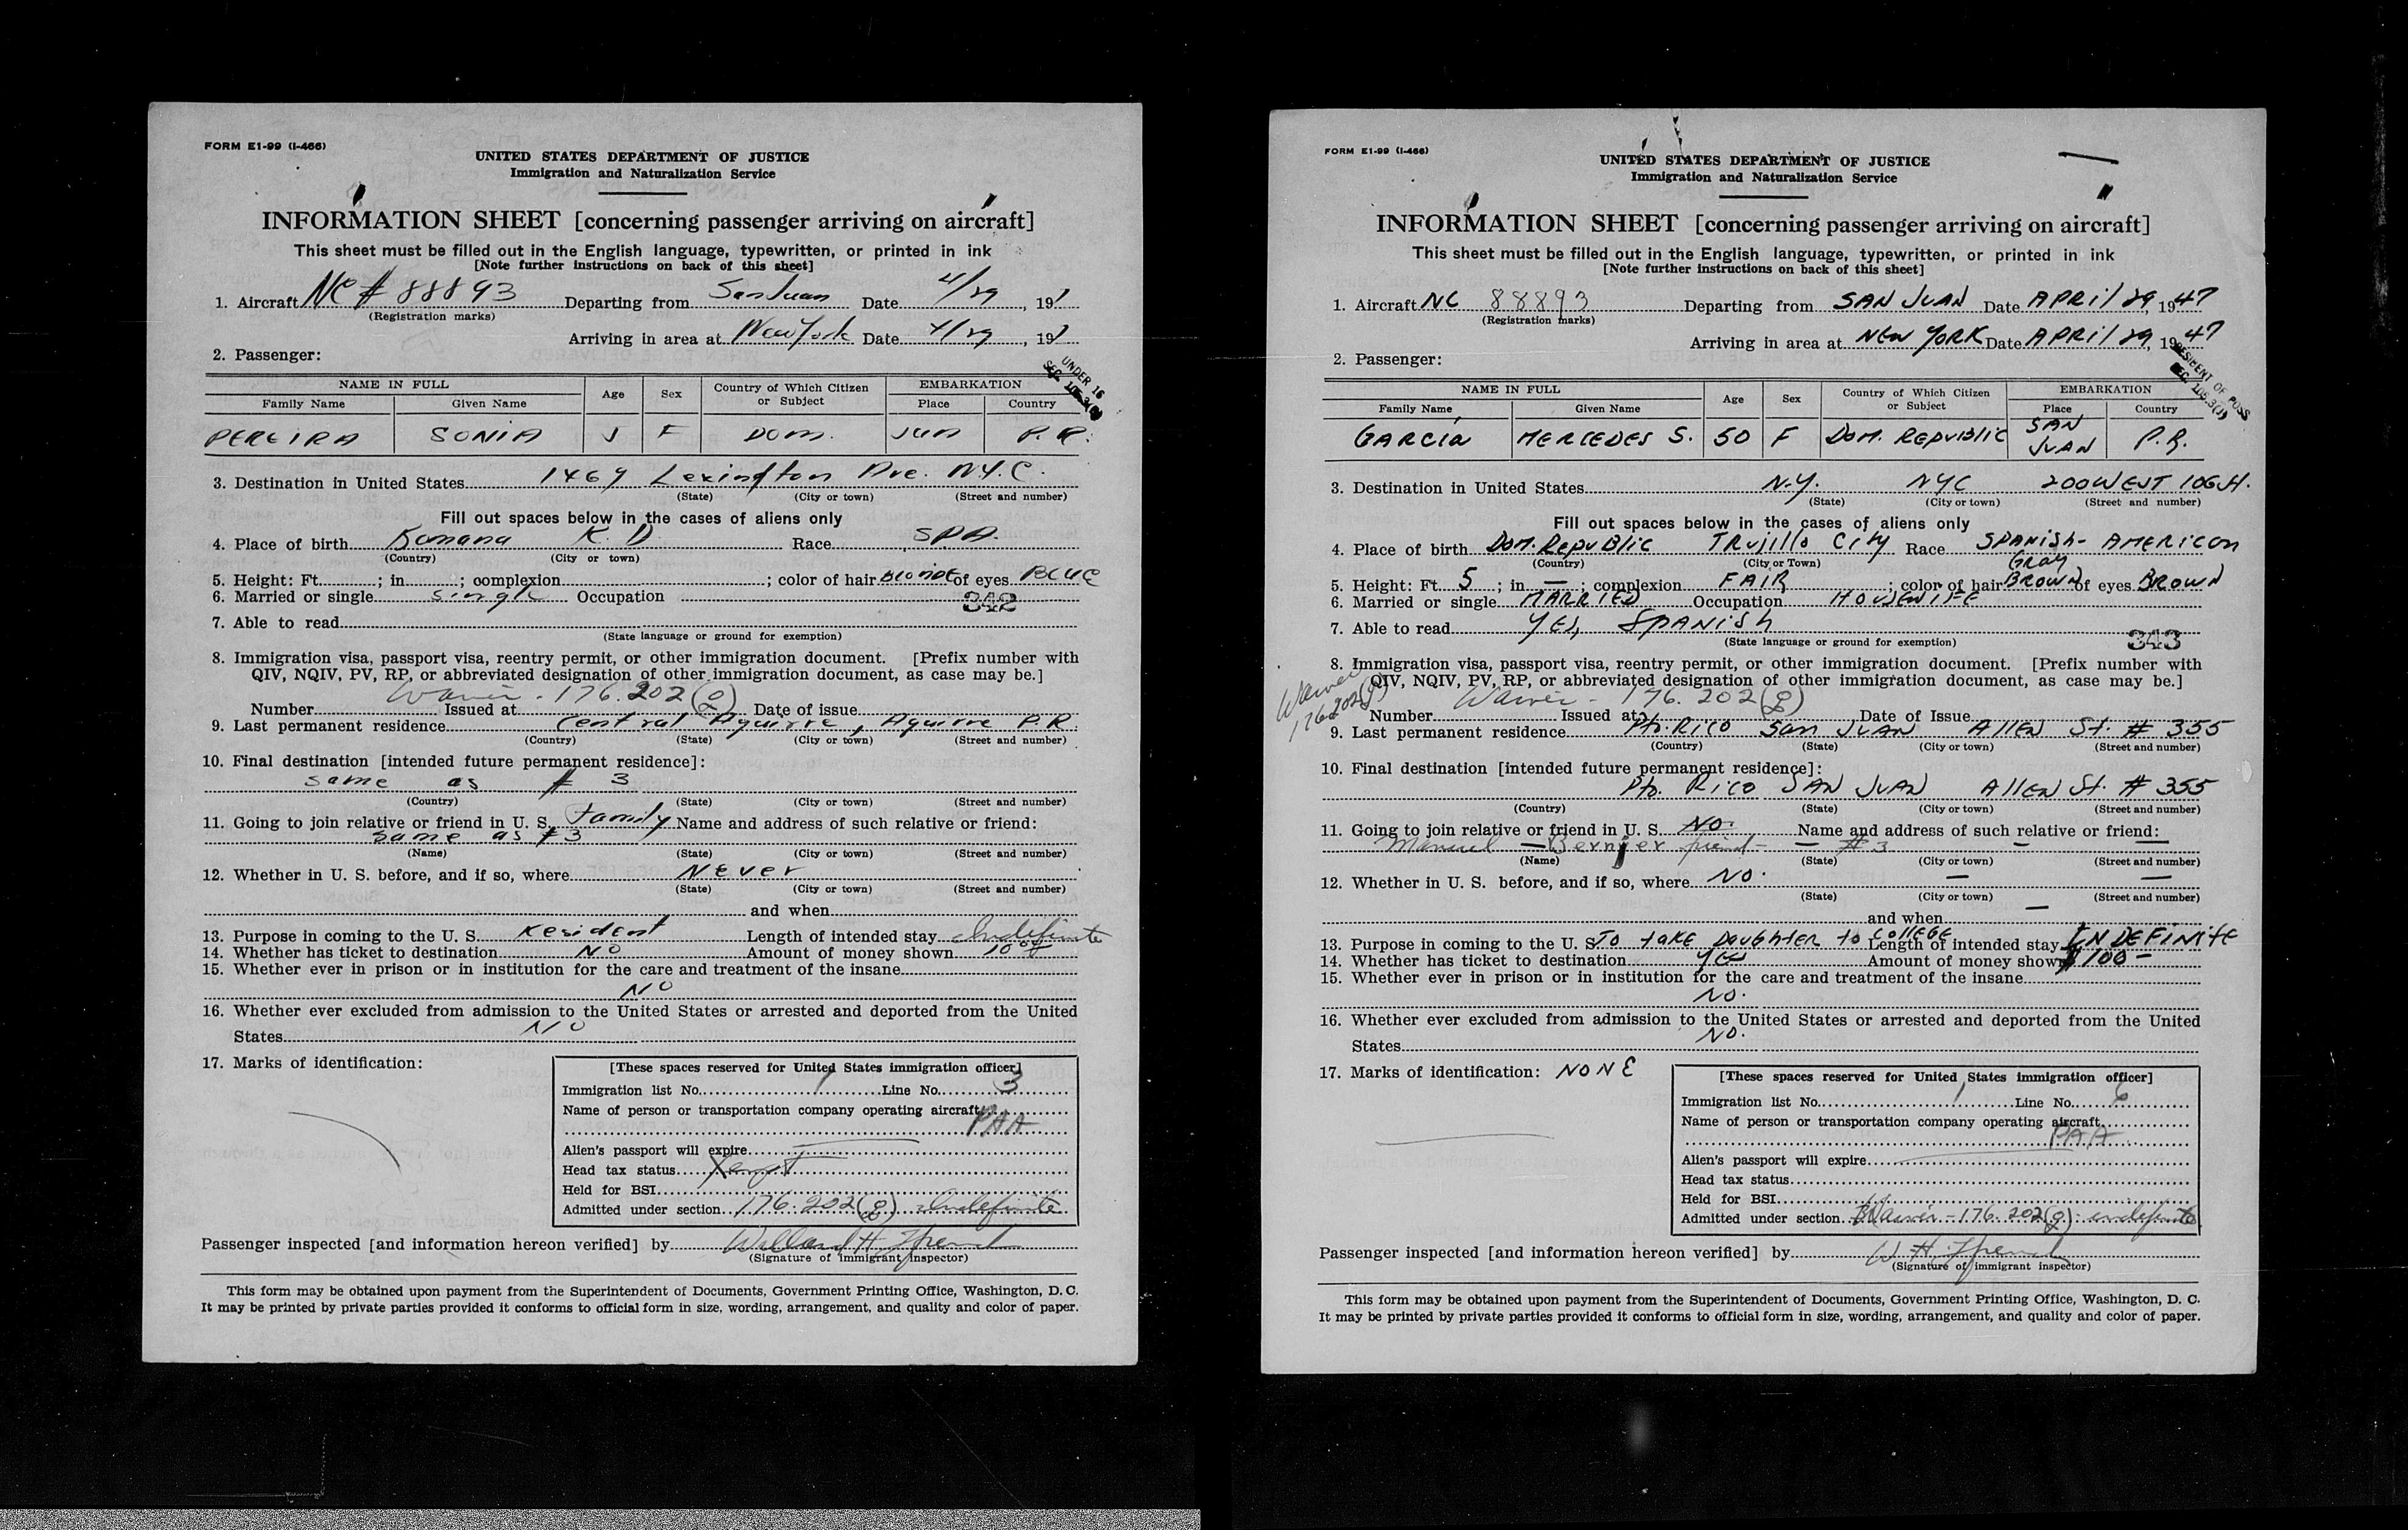 FORM E1-99 (I-466)
UNITED STATES DEPARTMENT OF JUSTICE
Immigration and Naturalization Service
INFORMATION SHEET [concerning passenger arriving on aircraft]
This sheet must be filled out in the English language, typewritten, or printed in ink
[Note further instructions on back of this sheet]
1. Aircraft NC # 88893 Departing from San Juan Date 4/29, 19
(Registration marks)
Arriving in area at New York Date 4/29, 19
2. Passenger:
UNDER 16
SEC. 105.3( )
NAME IN FULL Age Sex Country of Which Citizen or Subject EMBARKATION
Family Name Given Name Place Country
PEREIRA SONIA 5 F DOM. Jun P.R.
3. Destination in United States 1469 Lexington Ave. N.Y.C.
(State) (City or town) (Street and number)
Fill out spaces below in the cases of aliens only
4. Place of birth Romana R.D. Race SPA.
(Country) (City or town)
5. Height: Ft. ; in ; complexion ; color of hair BLONDE of eyes BLUE
6. Married or single single Occupation
342
7. Able to read
(State language or ground for exemption)
8. Immigration visa, passport visa, reentry permit, or other immigration document. [Prefix number with
QIV, NQIV, PV, RP, or abbreviated designation of other immigration document, as case may be.]
Waiver - 176.202(g)
Number Issued at Date of issue
9. Last permanent residence Central Aguirre, Aguirre P.R.
(Country) (State) (City or town) (Street and number)
10. Final destination [intended future permanent residence]:
same as # 3
(Country) (State) (City or town) (Street and number)
11. Going to join relative or friend in U. S. Family Name and address of such relative or friend:
same as #3
(Name) (State) (City or town) (Street and number)
12. Whether in U. S. before, and if so, where Never
(State) (City or town) (Street and number)
and when
13. Purpose in coming to the U. S. Resident Length of intended stay Indefinite
14. Whether has ticket to destination NO Amount of money shown 10 00
15. Whether ever in prison or in institution for the care and treatment of the insane
NO
16. Whether ever excluded from admission to the United States or arrested and deported from the United
States NO
17. Marks of identification:
[These spaces reserved for United States immigration officer]
Immigration list No. 1 Line No. 3
Name of person or transportation company operating aircraft
PAA
Alien's passport will expire
Head tax status Exempt
Held for BSI
Admitted under section 176.202(g) Indefinite
Passenger inspected [and information hereon verified] by Willard H. French
(Signature of immigrant inspector)
This form may be obtained upon payment from the Superintendent of Documents, Government Printing Office, Washington, D. C.
It may be printed by private parties provided it conforms to official form in size, wording, arrangement, and quality and color of paper.
FORM E1-99 (I-466)
UNITED STATES DEPARTMENT OF JUSTICE
Immigration and Naturalization Service
INFORMATION SHEET [concerning passenger arriving on aircraft]
This sheet must be filled out in the English language, typewritten, or printed in ink
[Note further instructions on back of this sheet]
1. Aircraft NC 88893 Departing from SAN JUAN Date APRil 29, 1947
(Registration marks)
Arriving in area at NEW YORK Date APRil 29, 1947
2. Passenger:
RESIDENT OF POSS
SEC. 105.3(J)
NAME IN FULL Age Sex Country of Which Citizen or Subject EMBARKATION
Family Name Given Name Place Country
GARCIA MERCEDES S. 50 F DOM. REPUBLIC SAN JUAN P.R.
3. Destination in United States N.Y. NYC 200 WEST 106 St.
(State) (City or town) (Street and number)
Fill out spaces below in the cases of aliens only
4. Place of birth DOM. REPUBLIC TRUJILLO CITY Race SPANISH-AMERICAN
(Country) (City or Town)
Gray
5. Height: Ft. 5 ; in — ; complexion FAIR ; color of hair BROWN of eyes BROWN
6. Married or single MARRIED Occupation HOUSEWIFE
7. Able to read YES, SPANISH
(State language or ground for exemption)
343
8. Immigration visa, passport visa, reentry permit, or other immigration document. [Prefix number with
QIV, NQIV, PV, RP, or abbreviated designation of other immigration document, as case may be.]
Waiver 176.202(g)
Waiver - 176.202(g)
Number Issued at Date of Issue
9. Last permanent residence Pto. RICO San JUAN AllEN St. # 355
(Country) (State) (City or town) (Street and number)
10. Final destination [intended future permanent residence]:
Pto. RICO SAN JUAN AllEN St. # 355
(Country) (State) (City or town) (Street and number)
11. Going to join relative or friend in U. S. NO. Name and address of such relative or friend:
Manuel — Bernier friend - — # 3 — —
(Name) (State) (City or town) (Street and number)
12. Whether in U. S. before, and if so, where NO. — —
(State) (City or town) (Street and number)
and when —
13. Purpose in coming to the U. S. To TAKE DAUGHTER to COLLEGE Length of intended stay INDEFINITE
14. Whether has ticket to destination YES Amount of money shown $100 —
15. Whether ever in prison or in institution for the care and treatment of the insane
NO.
16. Whether ever excluded from admission to the United States or arrested and deported from the United
States NO.
17. Marks of identification: NONE
[These spaces reserved for United States immigration officer]
Immigration list No. 1 Line No. 6
Name of person or transportation company operating aircraft
PAA
Alien's passport will expire
Head tax status
Held for BSI
Admitted under section Waiver - 176.202(g) indefinite
Passenger inspected [and information hereon verified] by W. H. French
(Signature of immigrant inspector)
This form may be obtained upon payment from the Superintendent of Documents, Government Printing Office, Washington, D. C.
It may be printed by private parties provided it conforms to official form in size, wording, arrangement, and quality and color of paper.